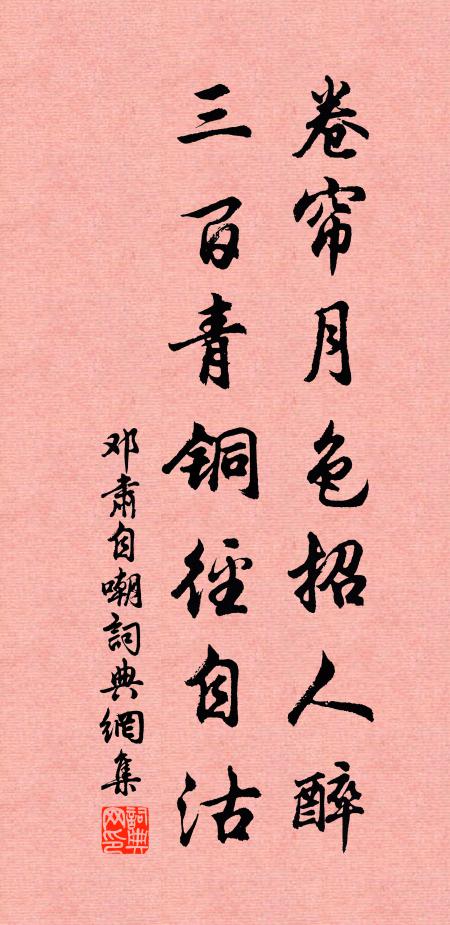 卷帘月色招人醉
三百青铜径自沽
邓肃自嘲詞典網集
詞典网印